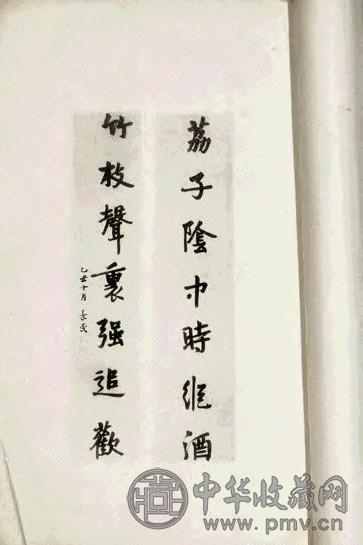 荔子陰中時縱酒
竹枝聲裏强追歡
乙丑十月
中华收藏网
www.pmv.cn